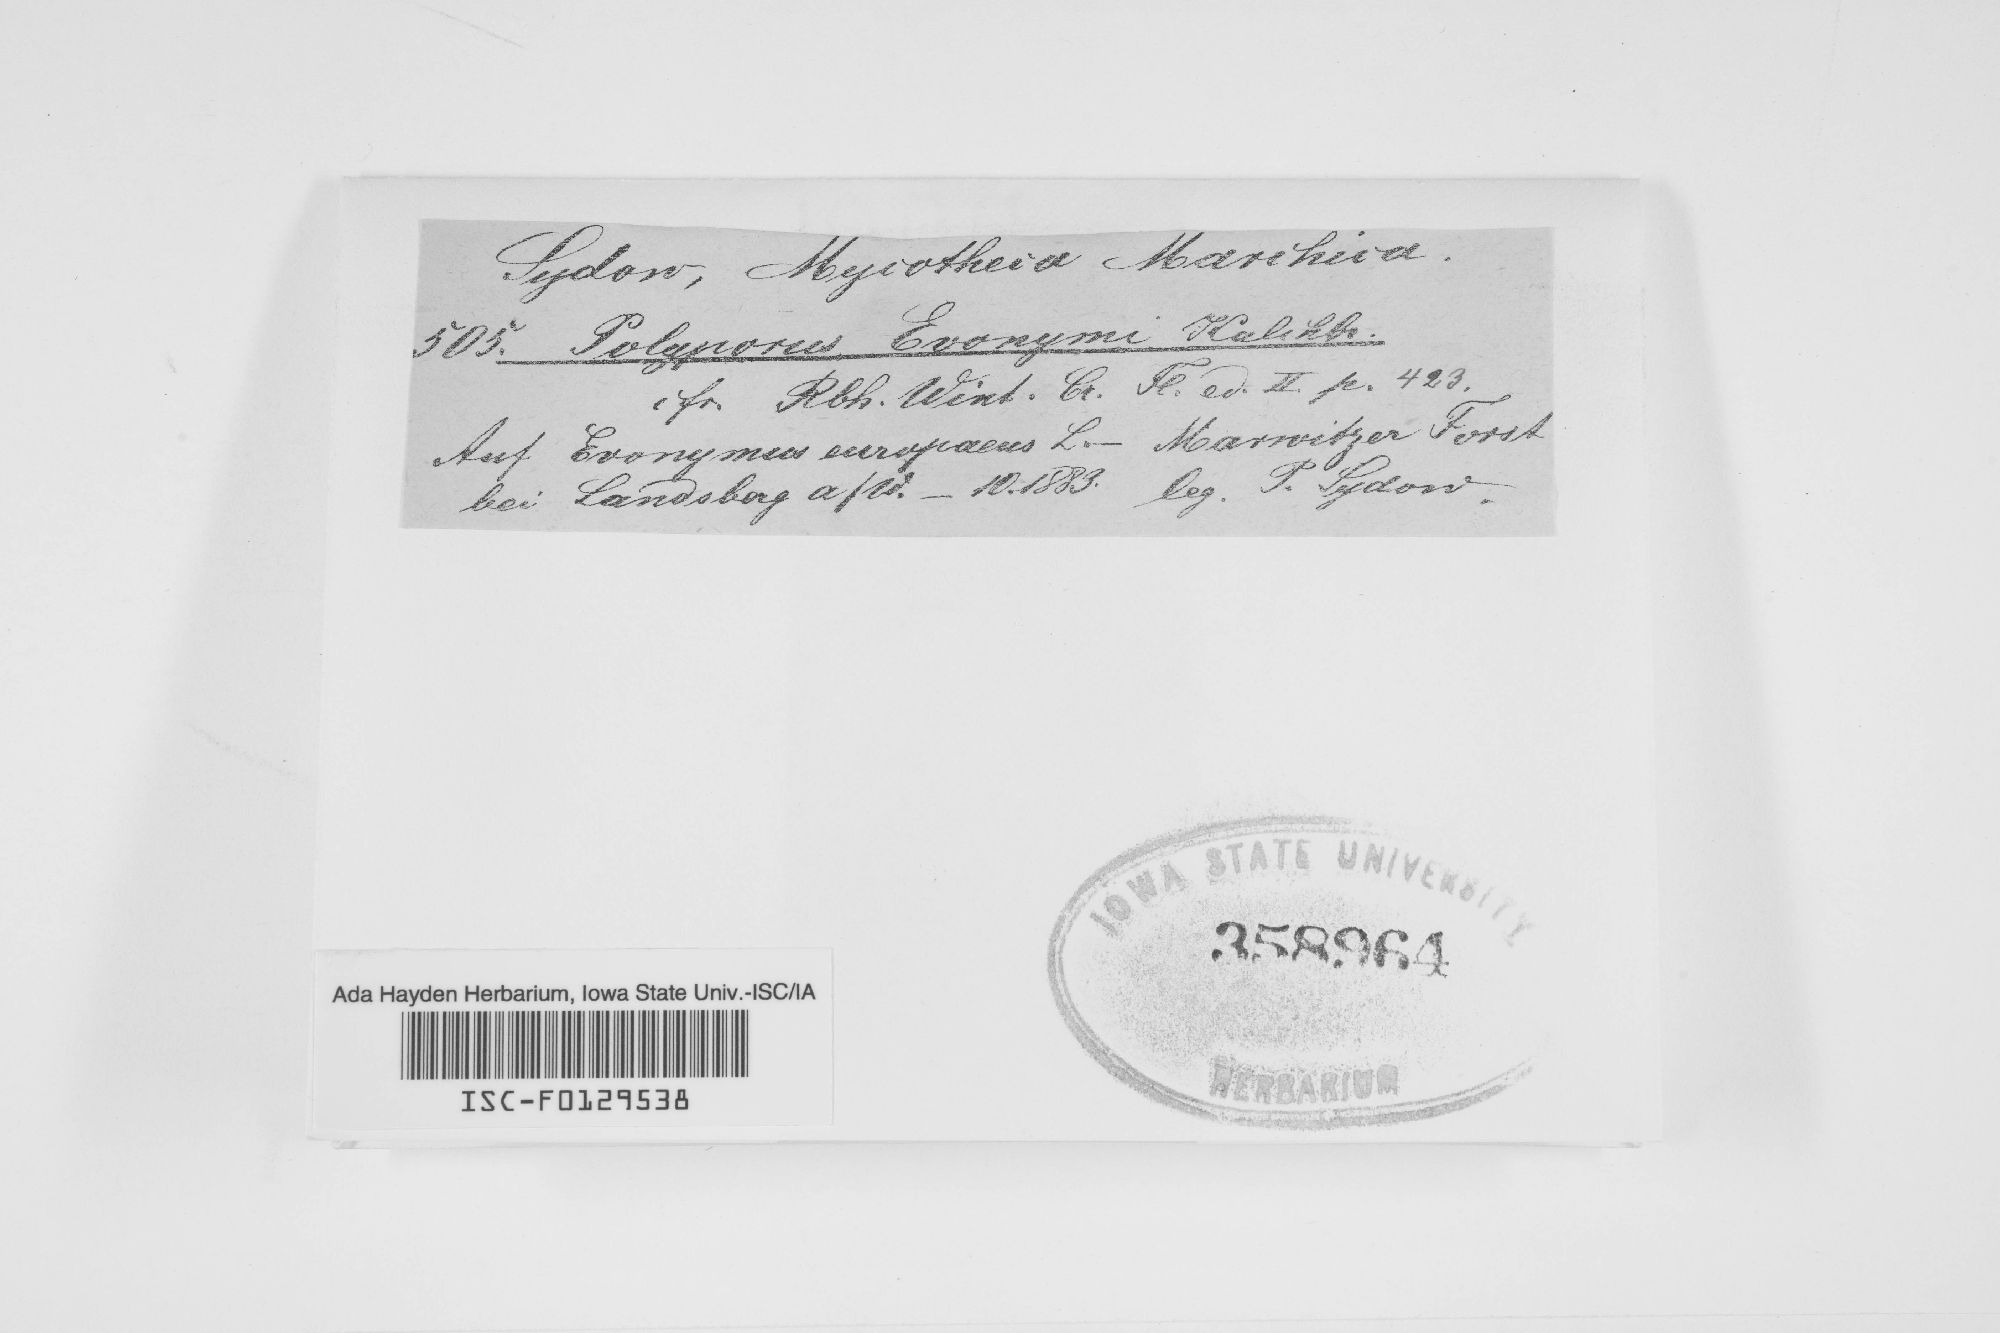 Sydow, Mycotheca Marchica.
505. Polyporus Evonymi Kalchbr.
cfr. Rbh. Wint. Cr. Fl. ed. II. p. 423.
Auf Evonymus europaeus L. — Marwitzer Forst
bei Landsberg a/W. — 10.1883. leg. P. Sydow.
IOWA STATE UNIVERSITY
358964
HERBARIUM
Ada Hayden Herbarium, Iowa State Univ.-ISC/IA
ISC-F0129538